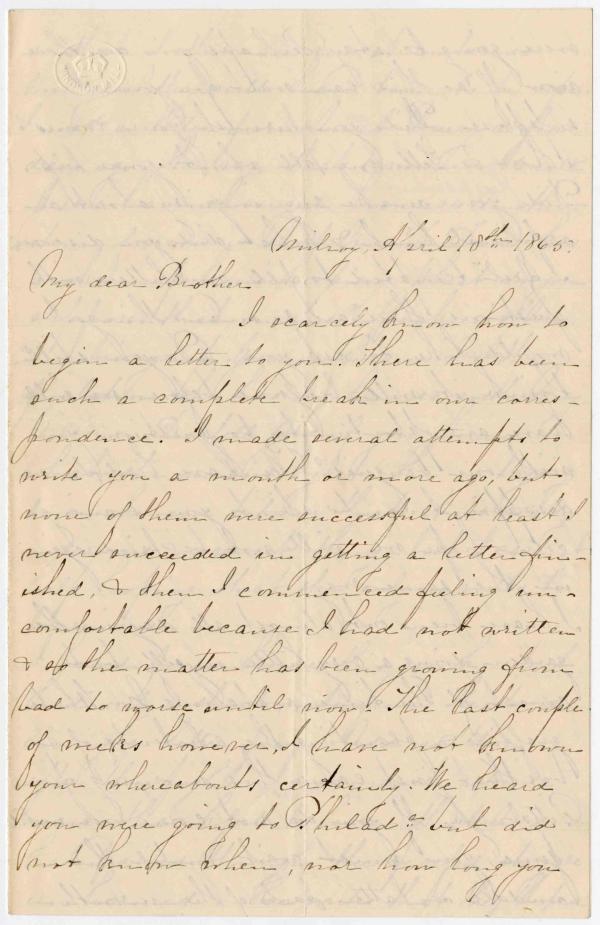 Milroy, April 18th 1865.
My dear Brother
I scarcely know how to
begin a letter to you. There has been
such a complete break in our corres-
pondence. I made several attempts to
write you a month or more ago, but
none of them were successful at least I
never succeeded in getting a letter fin-
ished, & then I commenced feeling un-
comfortable because I had not written
& so the matter has been growing from
bad to worse until now. The last couple
of weeks however, I have not known
your whereabouts certainly. We heard
you were going to Philada but did
not know when, nor how long you